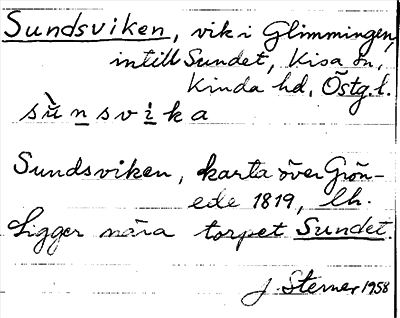 Sundsviken, vik i Glimmingen,
intill Sundet, Kisa sn,
Kinda hd, Östg.l.
sùnsvika
Sundsviken, karta över Grön-
ede 1819, lh.
Ligger nära torpet Sundet.
J. Sterner 1958